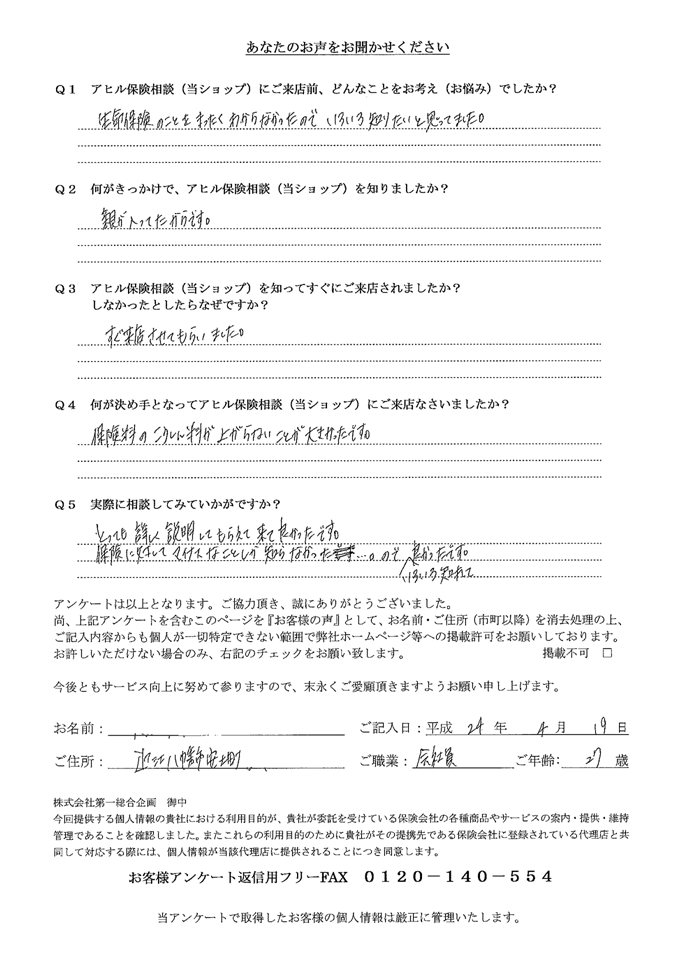 あなたのお声をお聞かせください
Q1 アヒル保険相談（当ショップ）にご来店前、どんなことをお考え（お悩み）でしたか？
生命保険のことをまったくわからなかったので いろいろ知りたいと思ってました。
Q2 何がきっかけで、アヒル保険相談（当ショップ）を知りましたか？
親が入ってたからです。
Q3 アヒル保険相談（当ショップ）を知ってすぐにご来店されましたか？
しなかったとしたらなぜですか？
すぐ来店させてもらいました。
Q4 何が決め手となってアヒル保険相談（当ショップ）にご来店なさいましたか？
保険料のこうしん料が上がらないことが大きかったです。
Q5 実際に相談してみていかがですか？
とっても詳しく説明してもらえて来て良かったです。
保険に対してマイナスなことしか知らなかった…ので 良かったです。
いろいろ知れて
アンケートは以上となります。ご協力頂き、誠にありがとうございました。
尚、上記アンケートを含むこのページを『お客様の声』として、お名前・ご住所（市町以降）を消去処理の上、
ご記入内容からも個人が一切特定できない範囲で弊社ホームページ等への掲載許可をお願いしております。
お許しいただけない場合のみ、右記のチェックをお願い致します。 掲載不可 □
今後ともサービス向上に努めて参りますので、末永くご愛顧頂きますようお願い申し上げます。
お名前： ご記入日：平成 24 年 4 月 19 日
ご住所： 八幡市 ご職業： 会社員 ご年齢： 27 歳
株式会社第一総合企画 御中
今回提供する個人情報の貴社における利用目的が、貴社が委託を受けている保険会社の各種商品やサービスの案内・提供・維持
管理であることを確認しました。またこれらの利用目的のために貴社がその提携先である保険会社に登録されている代理店と共
同して対応する際には、個人情報が当該代理店に提供されることにつき同意します。
お客様アンケート返信用フリーFAX 0120－140－554
当アンケートで取得したお客様の個人情報は厳正に管理いたします。